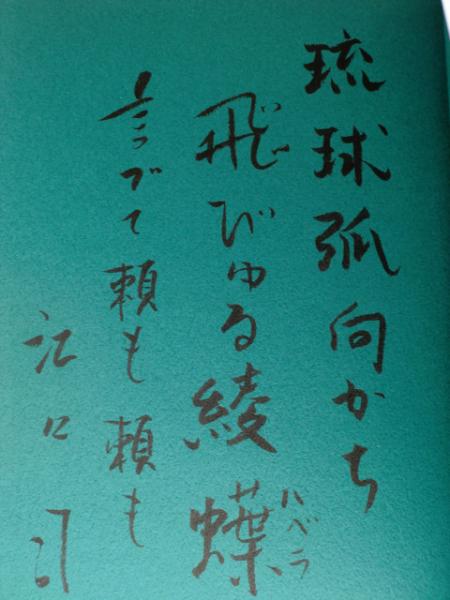 琉球弧向かち
飛びゅる綾蝶
ハベラ
言づて頼も頼も
江口司